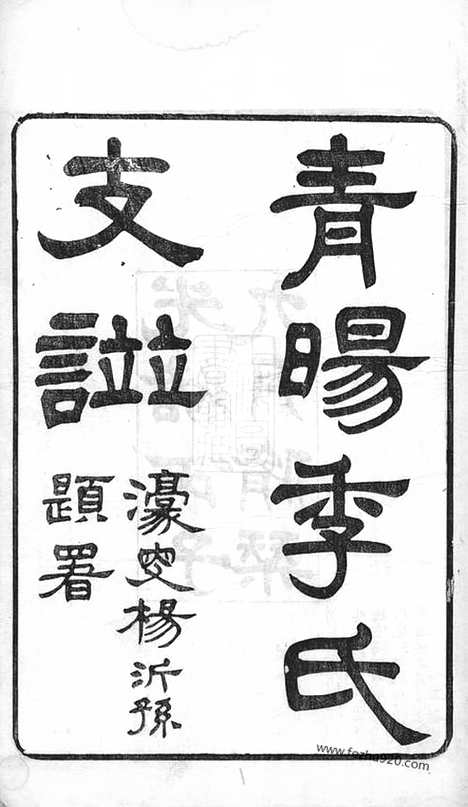 青暘季氏
支譜
濠叟楊沂孫
題署
www.fozhu920.com